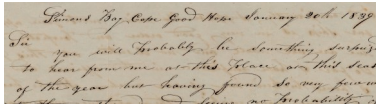 Simons Bay Cape Good Hope January 20th 1839
Sir
you will probably be something surprised
to hear from me at this place at this season
of the year but having found so very few
no probability